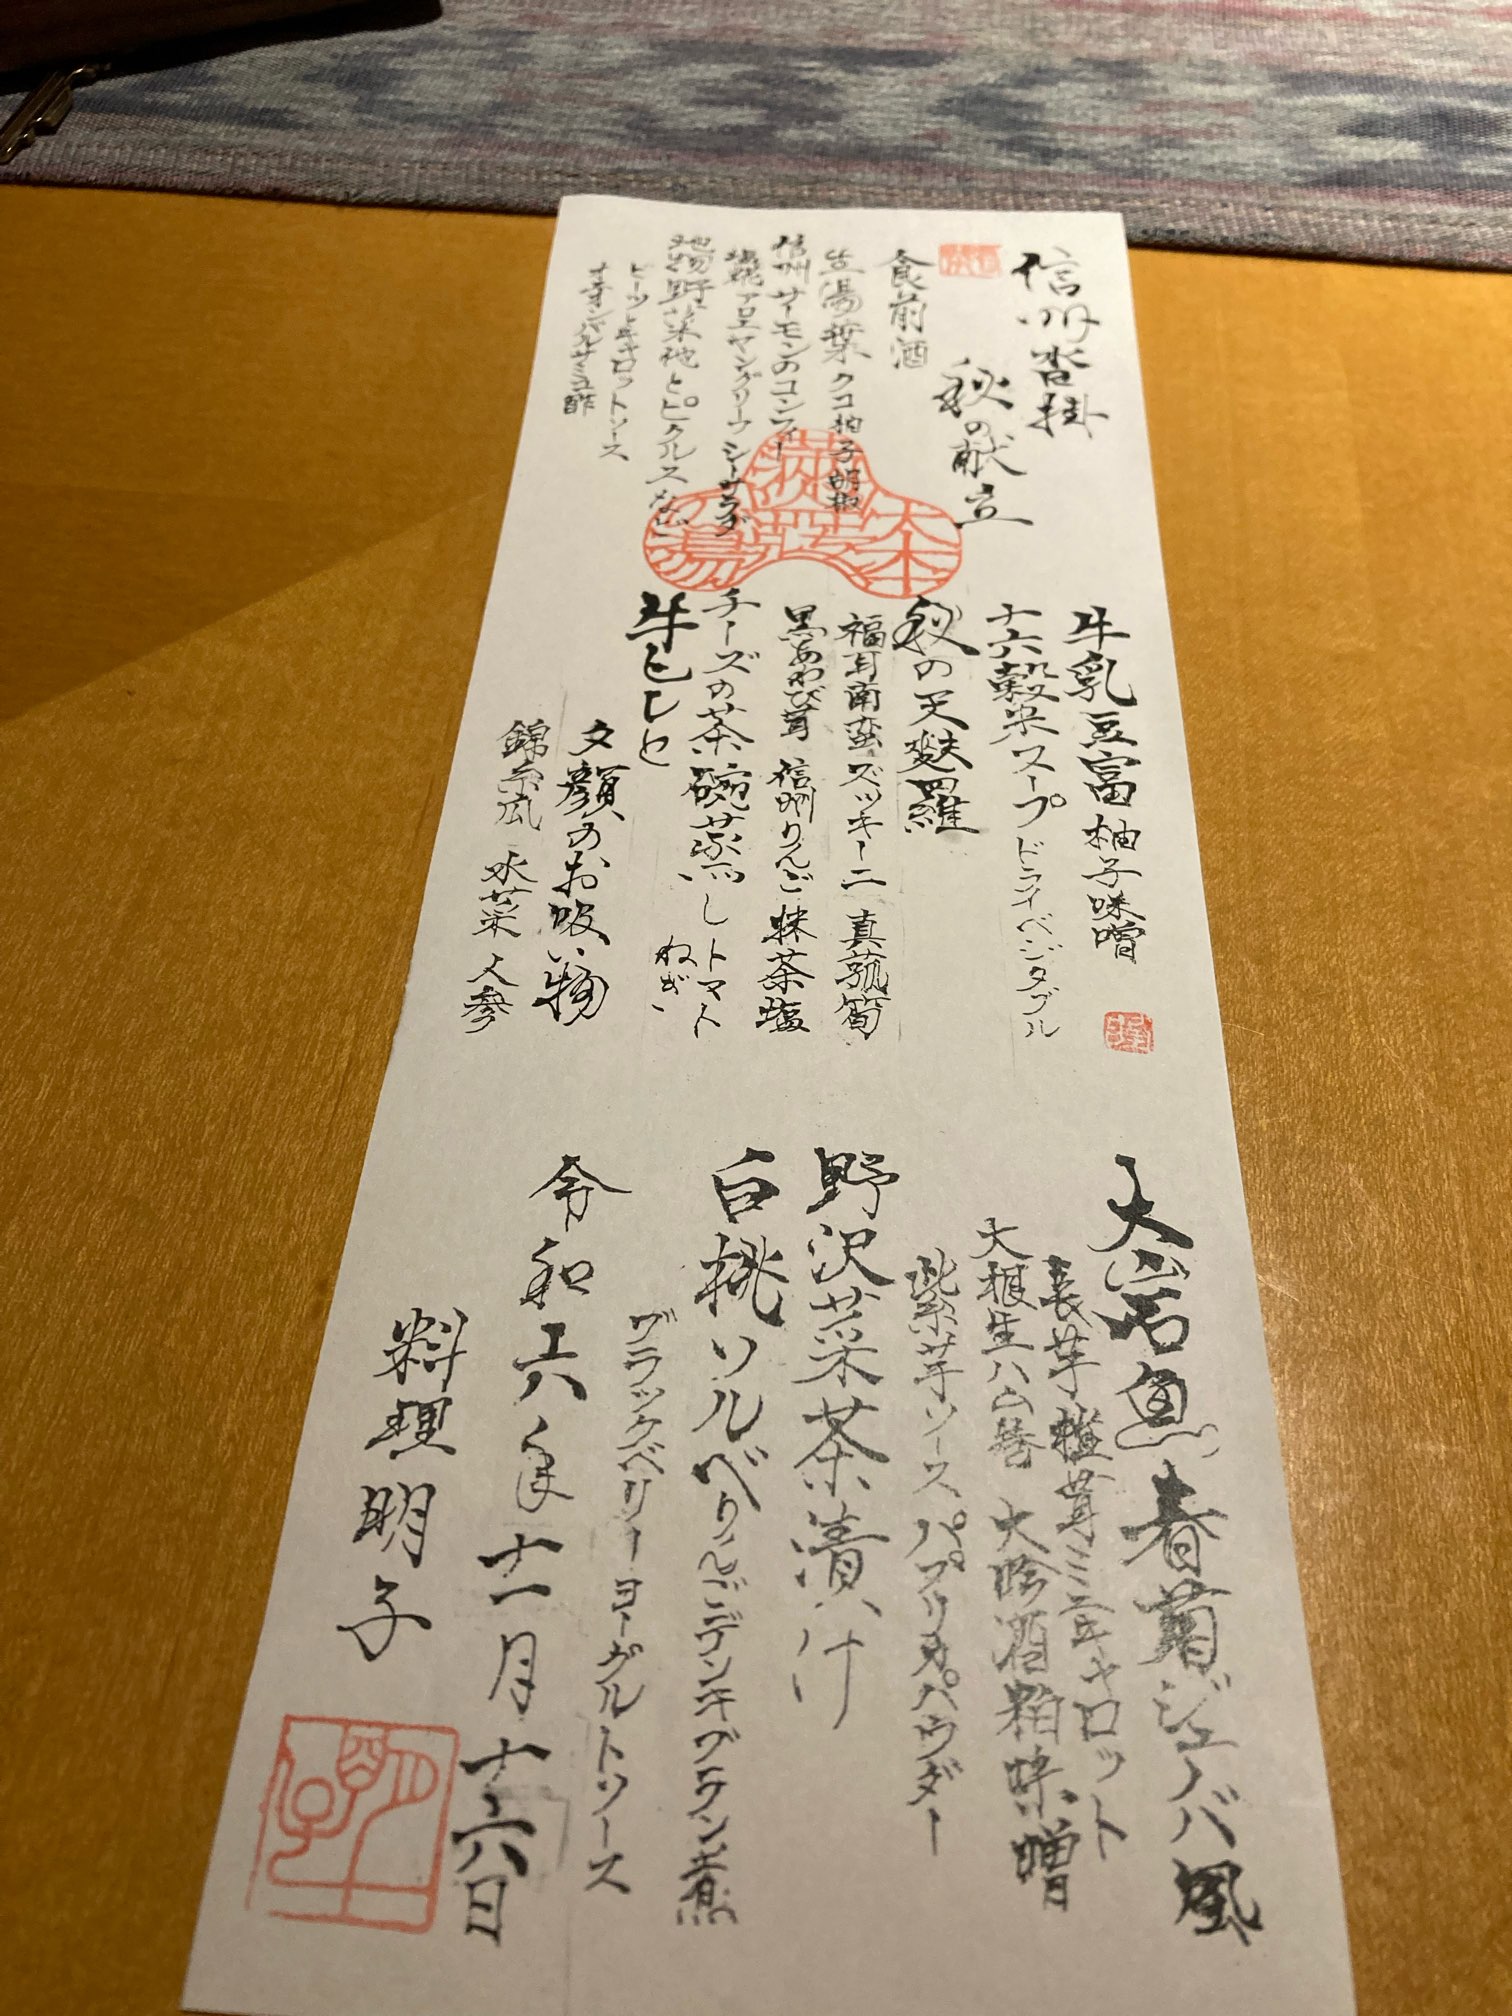 信州沓掛
秋の献立
食前酒
生湯葉クコ柚子胡椒
信州サーモンのコンフィー
塩糀アロエヤングリーフシーザラダ
地物野菜他とピクルスなど
ビーツとキャロットソース
オニオンバルサミコ酢
牛乳豆富 柚子味噌
十六穀米スープ ドライベジタブル
秋の天麩羅
福耳南蛮 ズッキーニ 真菰筍
黒あわび茸 信州りんご 抹茶塩
チーズの茶碗蒸し トマト
ねぎ
牛ヒレと
夕顔のお吸い物
錦糸瓜 水菜 人参
大岩魚春菊ジェノバ風
長芋 椎茸 ミニキャロット
大根生ハム巻 大吟酒粕味噌
紫芋ソース パプリカパウダー
野沢菜茶漬け
白桃ソルベ りんごデンキブラン煮
ブラックベリー ヨーグルトソース
令和六年十一月十六日
料理 明子